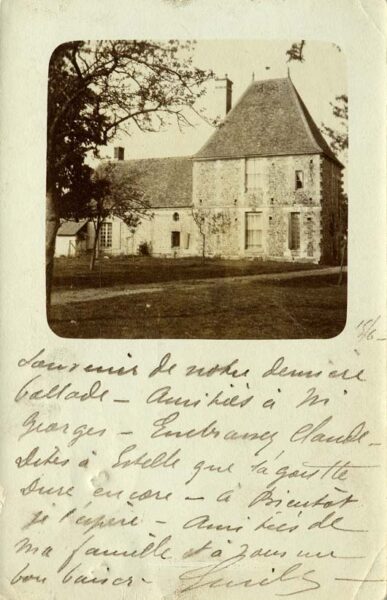 Souvenir de notre dernière
ballade - Amitiés à M
Georges - Embrassez Claude -
Dites à Estelle que sa goutte
dure encore - à Bientôt
je l'espère - Amitiés de
ma famille & à vous un
bon baiser -